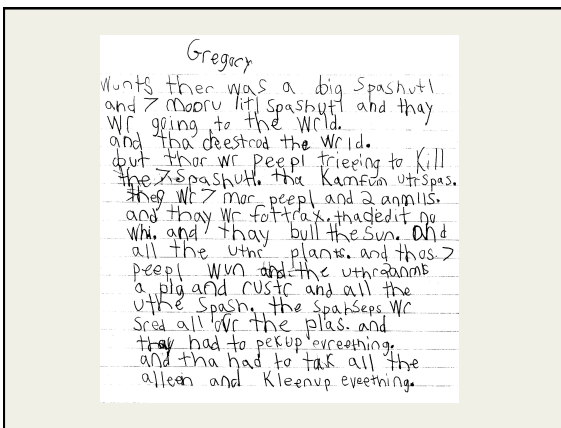 Gregory
Wunts ther was a big Spashutl
and 7 mooru litl Spashutl and thay
Wr going to the Wrld.
and tha deestrod the Wrld.
but thar Wr Peepl trieeing to Kill
the 7 Spashutl. tha Kamfum utrSpas.
they Wr 7 mor peepl and 2 anmlls.
and thay Wr fottrax. thadedit no
Whi. and thay bull the Sun. and
all the uthr plants. and thos 7
peepl wun and the uthr 2 anmls
a pig and rustr and all the
uthe Spash. the Spahseps Wr
Sred all ovr the plas. and
thay had to pekup evreething.
and tha had to tak all the
alleen and Kleenup eveething.